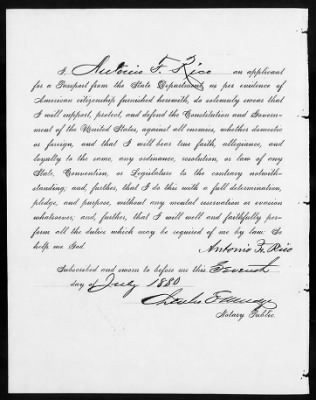 I, Antonio F. Rico an applicant
for a Passport from the State Department, as per evidence of
American citizenship furnished herewith, do solemnly swear that
I will support, protect, and defend the Constitution and Govern-
ment of the United States, against all enemies, whether domestic
or foreign, and that I will bear true faith, allegiance, and
loyalty to the same, any ordinance, resolution, or law of any
State, Convention, or Legislature to the contrary notwith-
standing; and, further, that I do this with a full determination,
pledge, and purpose, without any mental reservation or evasion
whatsoever; and, further, that I will well and faithfully per-
form all the duties which may be required of me by law: So
help me God.
Antonio F. Rico
Subscribed and sworn to before me this Seventh
day of July 1880
Charles
Notary Public.